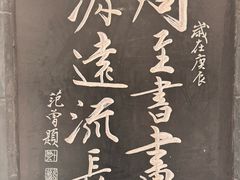 歲在庚辰
周至書畫
源遠流長
范曾題